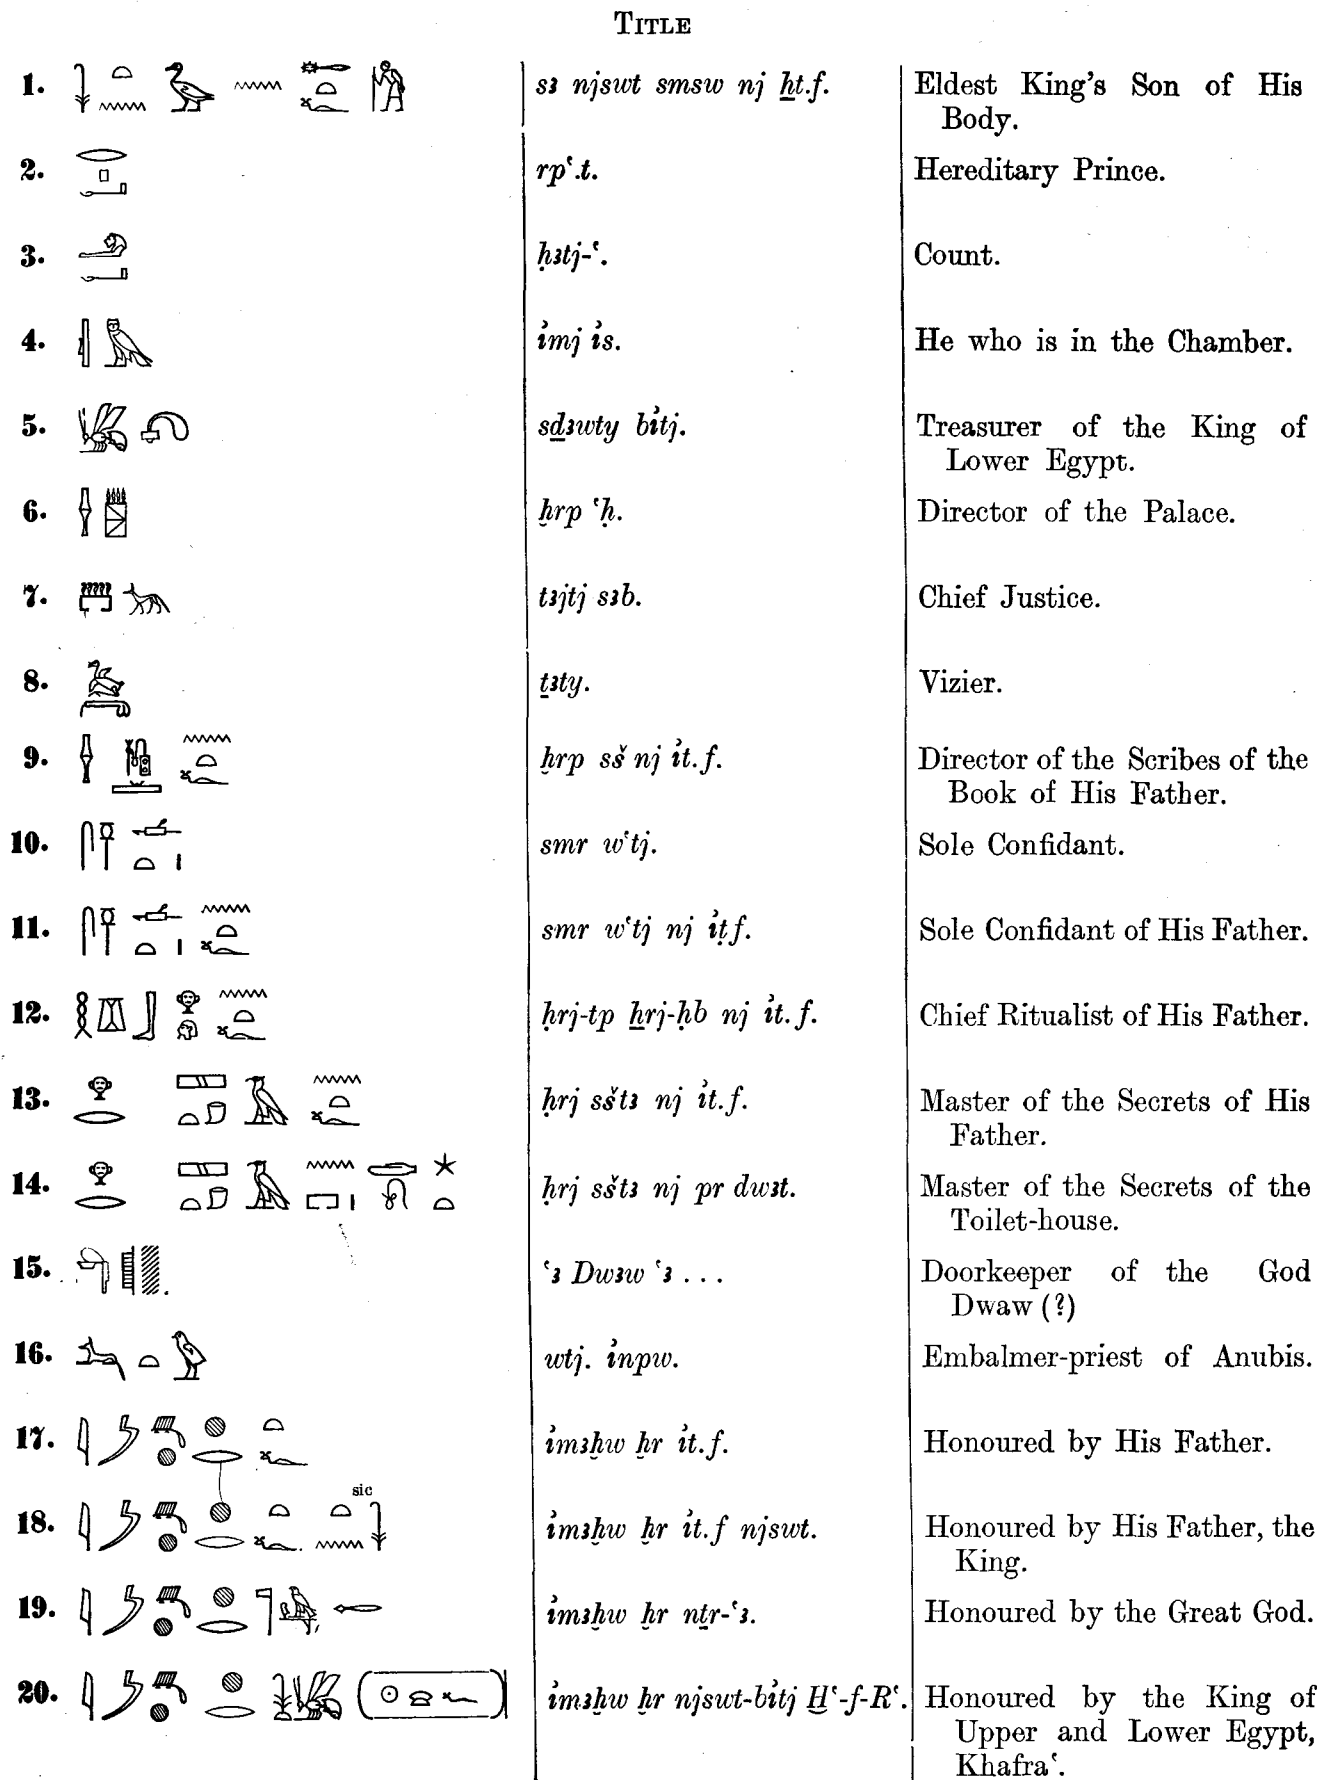 TITLE
1. 𓇓𓏏𓈖 𓅭 𓈖 𓄡𓏏𓆑 𓀗 sꜣ njswt smsw nj ẖt.f. Eldest King's Son of His
Body.
2. 𓂋𓊪𓂝 rpʿ.t. Hereditary Prince.
3. 𓄂𓂝 ḥꜣtj-ʿ. Count.
4. 𓅓 i҆mj i҆s. He who is in the Chamber.
5. 𓆤𓋨 sḏꜣwty bi҆tj. Treasurer of the King of
Lower Egypt.
6. ḫrp ʿḥ. Director of the Palace.
7. tꜣjtj sꜣb. Chief Justice.
8. ṯꜣty. Vizier.
9. 𓈖𓏏𓆑 ḫrp sš nj i҆t.f. Director of the Scribes of the
Book of His Father.
10. 𓋴𓌸𓌡𓏏𓏤 smr wʿtj. Sole Confidant.
11. 𓋴𓌸𓌡𓏏𓏤 𓈖𓏏𓆑 smr wʿtj nj i҆t.f. Sole Confidant of His Father.
12. 𓎛𓎚𓃀𓁷𓁶 𓈖𓏏𓆑 ḥrj-tp ẖrj-ḥb nj i҆t.f. Chief Ritualist of His Father.
13. 𓁷𓂋 𓈙𓏏𓎼 𓈖𓏏𓆑 ḥrj sštꜣ nj i҆t.f. Master of the Secrets of His
Father.
14. 𓁷𓂋 𓈙𓏏𓎼 𓈖𓉐𓏤 𓂧𓍯𓇼𓏏 ḥrj sštꜣ nj pr dwꜣt. Master of the Secrets of the
Toilet-house.
15. ʿꜣ Dwꜣw ʿꜣ . . . Doorkeeper of the God
Dwaw (?)
16. 𓃣𓏏𓅱 wtj. i҆npw. Embalmer-priest of Anubis.
17. 𓇋𓌳𓄪𓐍 𓐍𓂋 𓏏𓆑 i҆mꜣḫw ḫr i҆t.f. Honoured by His Father.
sic
18. 𓇋𓌳𓄪𓐍 𓐍𓂋 𓏏𓆑 𓏏𓈖𓇓 i҆mꜣḫw ḫr i҆t.f njswt. Honoured by His Father, the
King.
19. 𓇋𓌳𓄪𓐍 𓐍𓂋 𓊹 𓉻 i҆mꜣḫw ḫr nṯr-ʿꜣ. Honoured by the Great God.
20. 𓇋𓌳𓄪𓐍 𓐍𓂋 𓇓𓆤 𓍹𓇳𓈍𓆑𓍺 i҆mꜣḫw ḫr njswt-bi҆tj Ḫʿ-f-Rʿ. Honoured by the King of
Upper and Lower Egypt,
Khafraʿ.